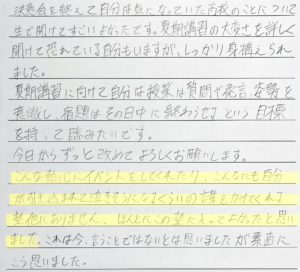 決意会を終えて自分は気になっていた高校のことについて
生で聞けてすごいよかったです。夏期講習の大変さを詳しく
聞けて恐れている自分もいますが、しっかり身構えられ
ました。
夏期講習に向けて自分は授業は質問や発言、姿勢を
意識し、宿題はその日中に終わらせるという目標
を持って臨みたいです。
今日からずっと改めてよろしくお願いします。
こんな熱心にイベントをしてくれたり、こんなにも自分
が引き込まれて泣きそうになるくらいの言葉をかけてくれる
塾他にありません、ほんとにこの塾に入ってよかったと思い
ました。これは今、言うことではないとは思いましたが素直に
こう思いました。